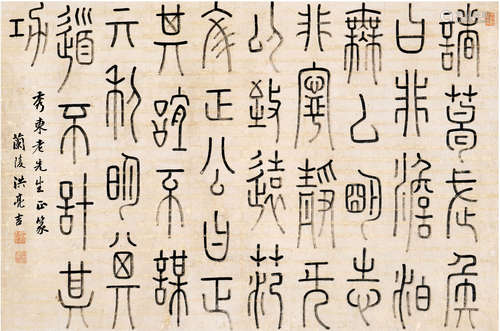 諸葛武侯
曰非澹泊
無以明志
非寧靜无
以致遠范
文正公曰正
其誼不謀
亓利明其
道不計其
功
秀東老先生正篆
蘭陵洪亮吉